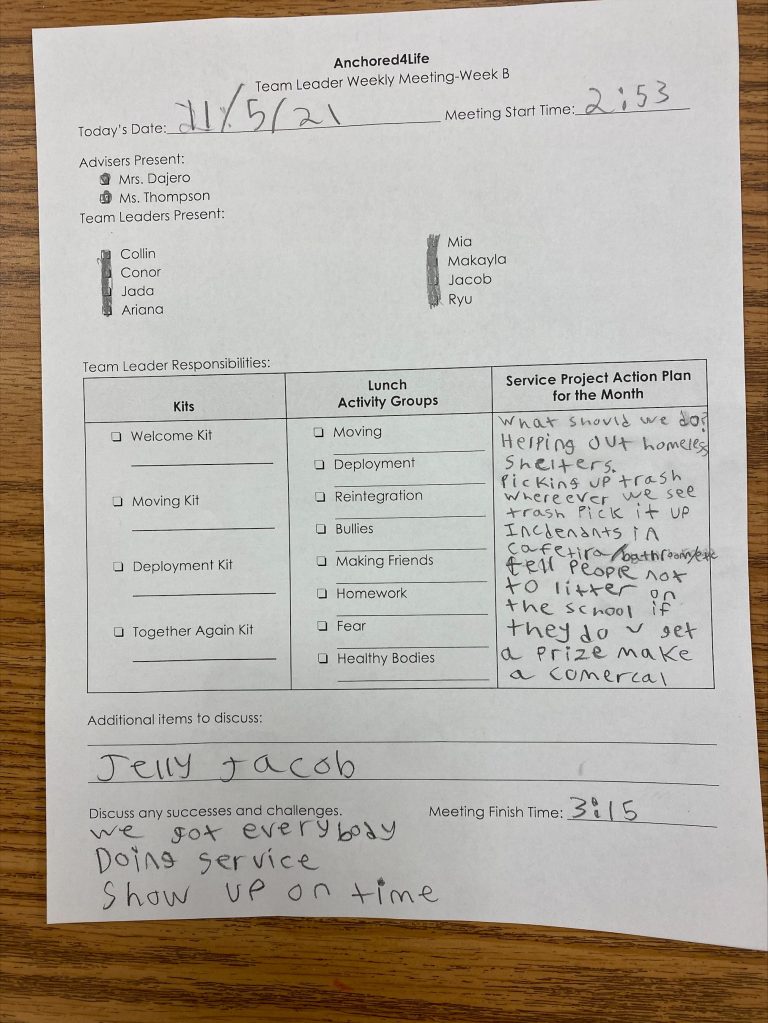 Anchored4Life
Team Leader Weekly Meeting-Week B
Today's Date: 11/5/21 Meeting Start Time: 2:53
Advisers Present:
Mrs. Dajero
Ms. Thompson
Team Leaders Present:
Collin
Conor
Jada
Ariana
Mia
Makayla
Jacob
Ryu
Team Leader Responsibilities:
Kits
Welcome Kit
Moving Kit
Deployment Kit
Together Again Kit
Lunch
Activity Groups
Moving
Deployment
Reintegration
Bullies
Making Friends
Homework
Fear
Healthy Bodies
Service Project Action Plan
for the Month
What should we do?
Helping out homeless
shelters.
Picking up trash
whereever we see
trash Pick it up
Incedents in
cafetira/bathroom/etc
tell people not
to litter on
the school if
they do u get
a prize make
a comercal
Additional items to discuss:
Jelly Jacob
Discuss any successes and challenges.
Meeting Finish Time: 3:15
we got everybody
Doing service
Show up on time